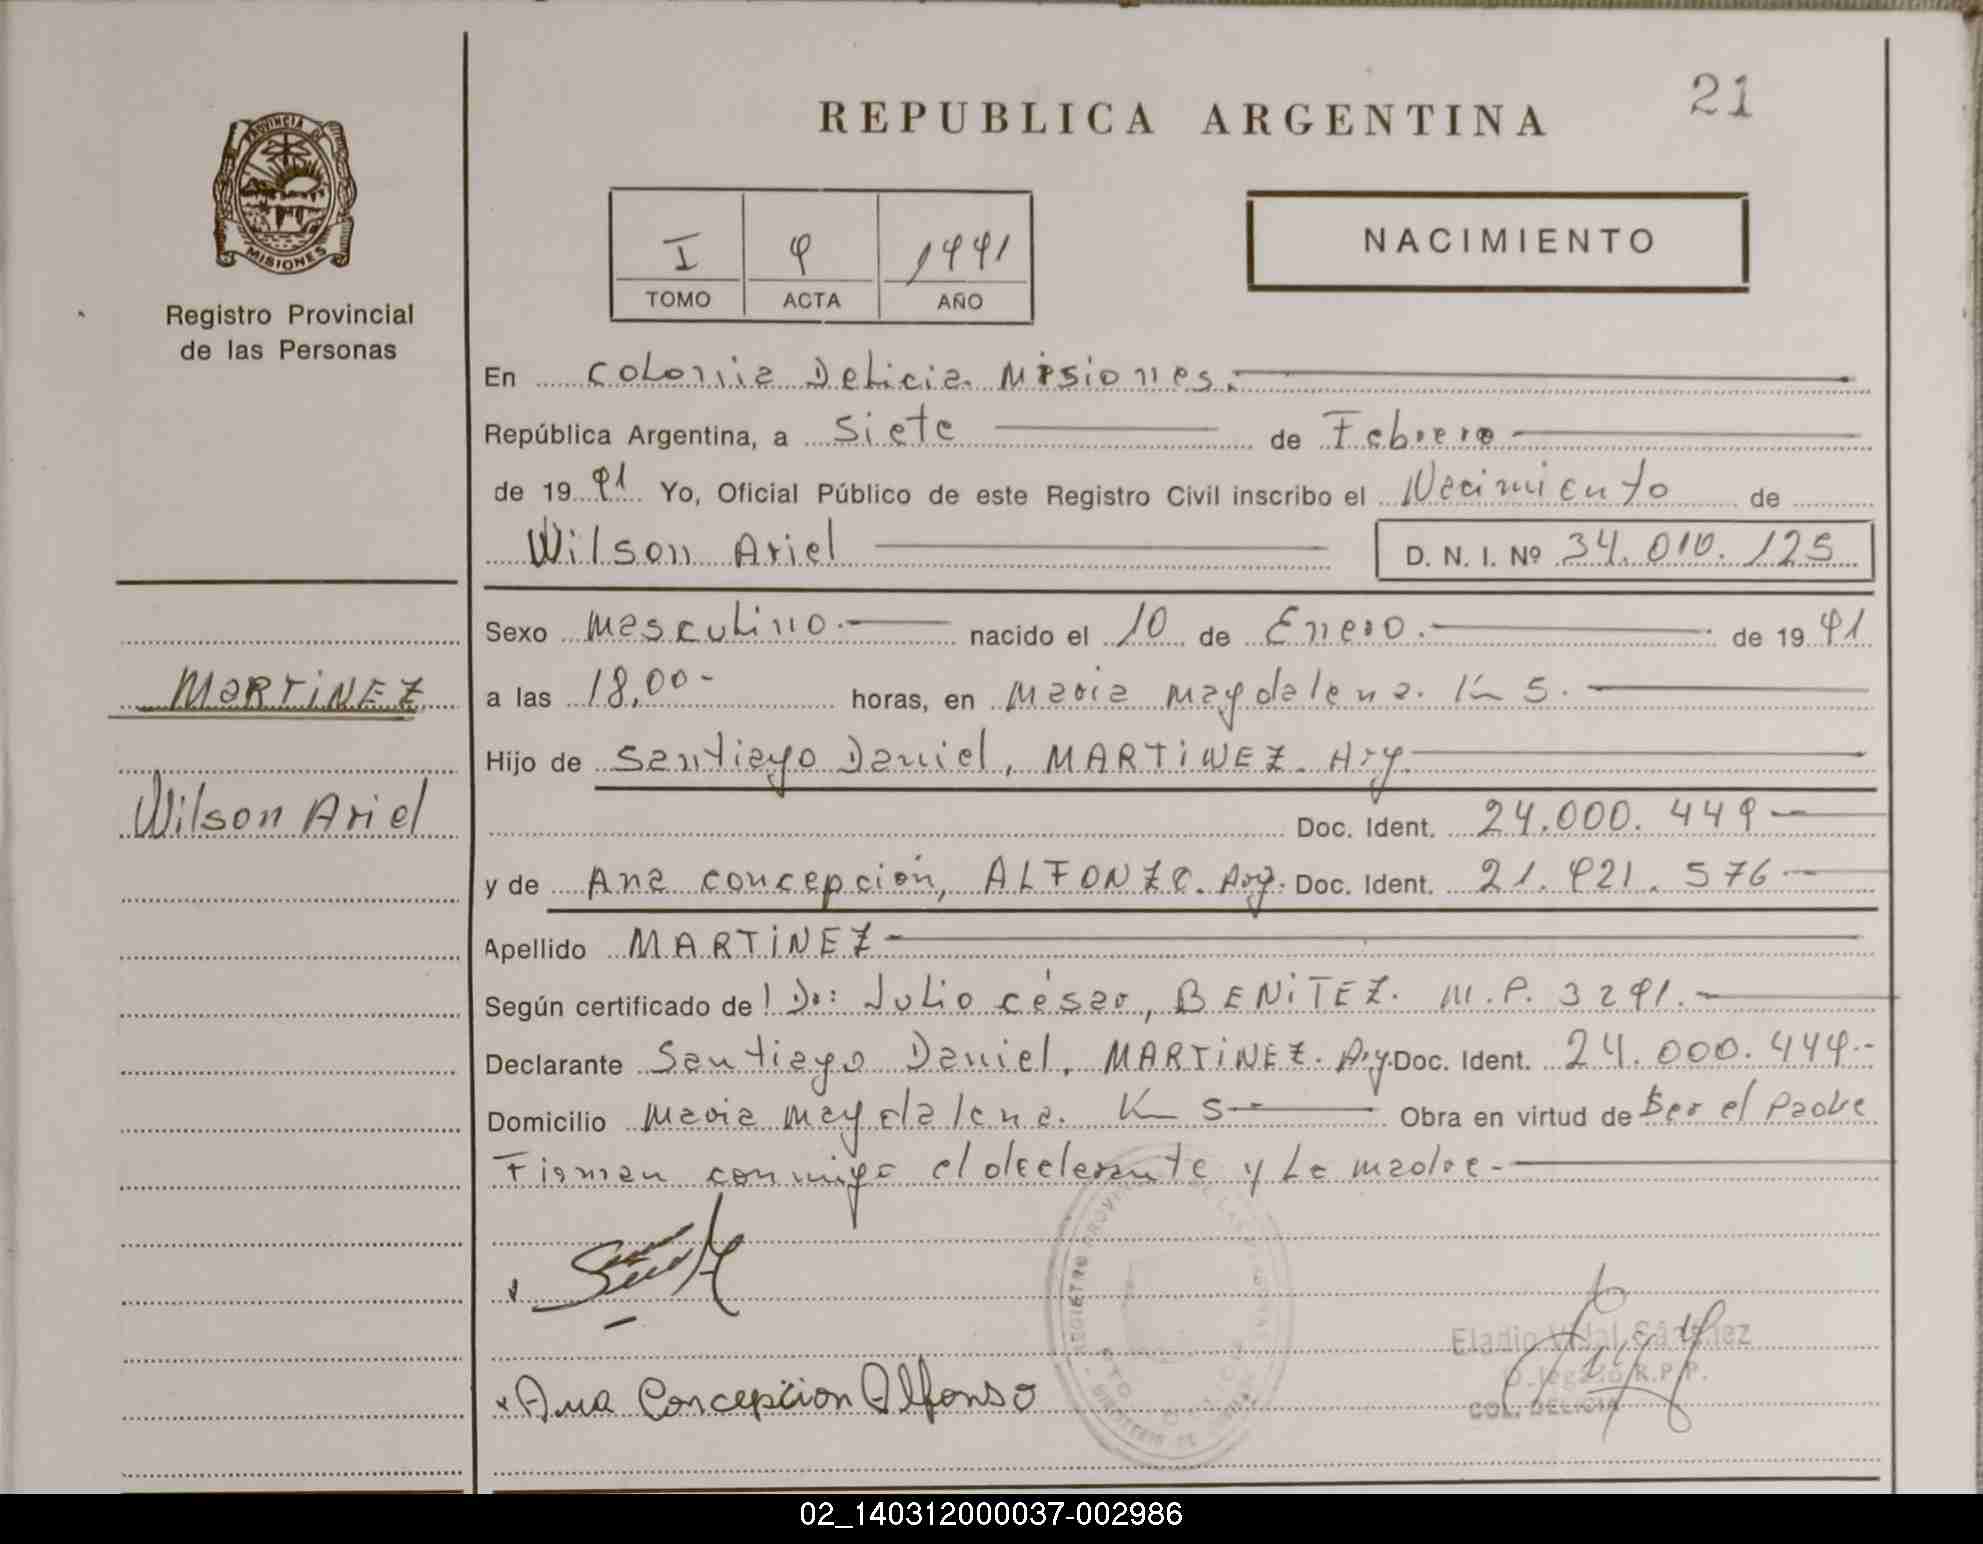 21
REPUBLICA ARGENTINA
PROVINCIA DE
MISIONES
Registro Provincial
de las Personas
I 9 1991
TOMO ACTA AÑO
NACIMIENTO
En Colonia Delicia Misiones.
República Argentina, a siete de Febrero
de 19 91 Yo, Oficial Público de este Registro Civil inscribo el Nacimiento de
Wilson Ariel D. N. I. Nº 34.010.125
Sexo masculino.- nacido el 10 de Enero. de 19 91
a las 18,00- horas, en maria magdalena. Km 5.
Hijo de Santiago Daniel, MARTiNEZ. Arg.
Doc. Ident. 24.000.449
y de Ana concepción, ALFONZO. Arg. Doc. Ident. 21.921.576
Apellido MARTiNEZ
Según certificado de Dr: Julio césar, BENiTEZ. M.P. 3291.
Declarante Santiago Daniel, MARTiNEZ. Arg. Doc. Ident. 24.000.449.-
Domicilio maria magdalena. Km 5 Obra en virtud de Ser el Padre
Firman conmigo el declarante y La madre.-
MARTiNEZ
Wilson Ariel
Ana Concepcion Alfonso
Eladio Vidal
R.P.P.
COL. DELICIA
REGISTRO
02_140312000037-002986